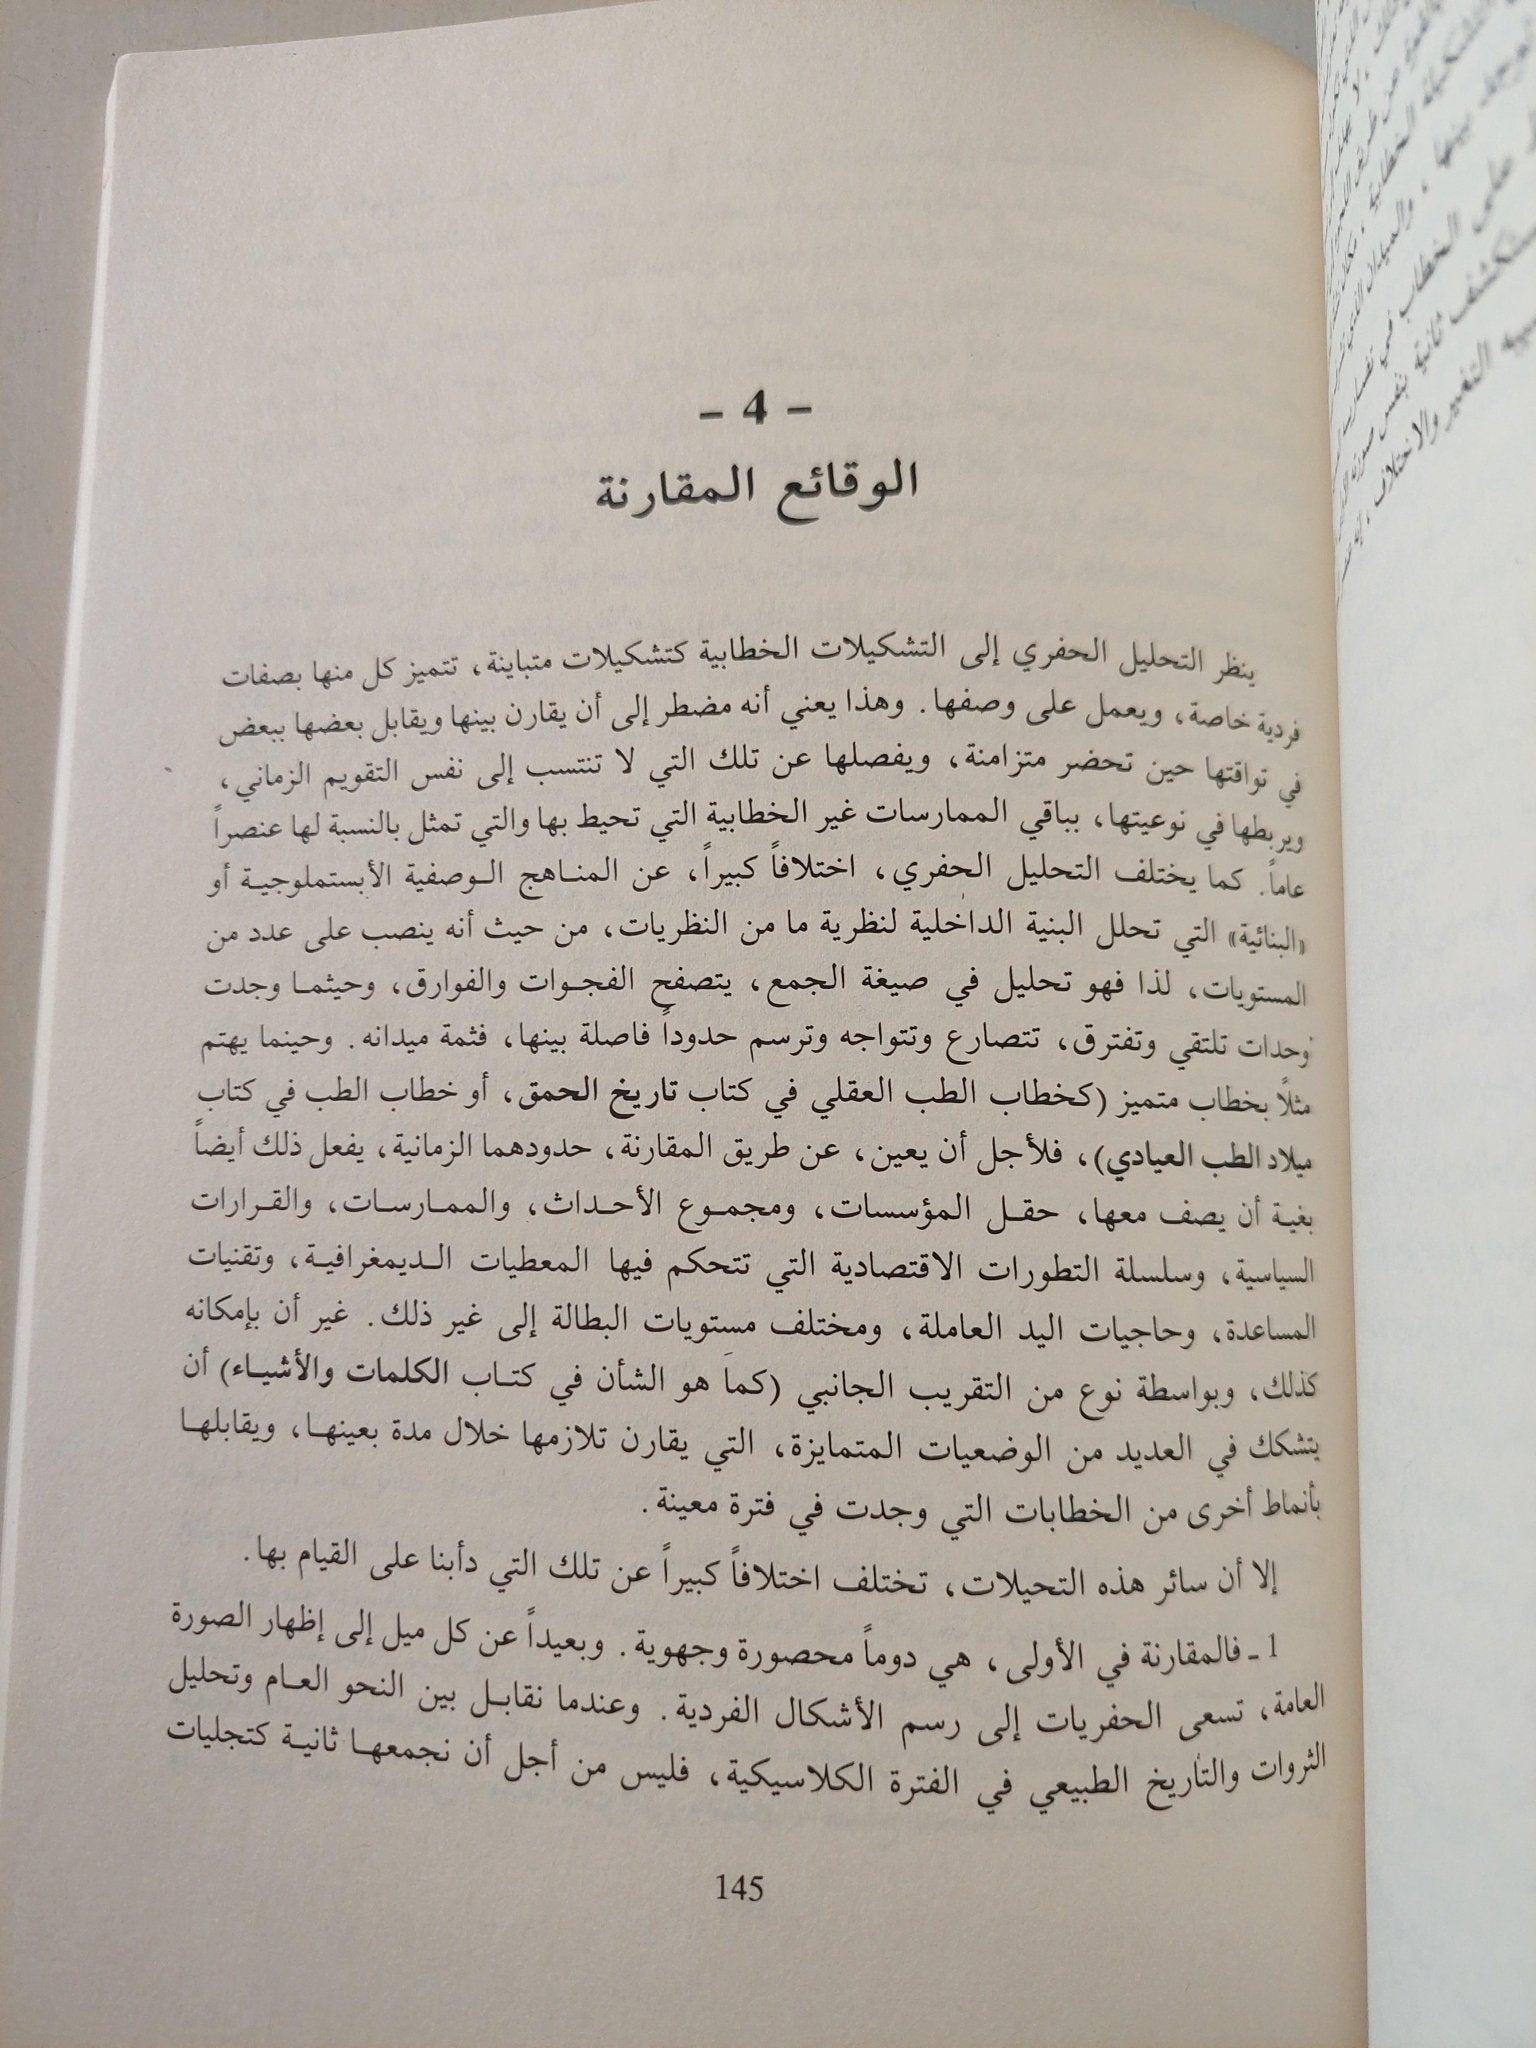 - 4 -
الوقائع المقارنة
ينظر التحليل الحفري إلى التشكيلات الخطابية كتشكيلات متباينة، تتميز كل منها بصفات
فردية خاصة، ويعمل على وصفها. وهذا يعني أنه مضطر إلى أن يقارن بينها ويقابل بعضها ببعض
في تواقتها حين تحضر متزامنة، ويفصلها عن تلك التي لا تنتسب إلى نفس التقويم الزماني،
ويربطها في نوعيتها، بباقي الممارسات غير الخطابية التي تحيط بها والتي تمثل بالنسبة لها عنصراً
عاماً. كما يختلف التحليل الحفري، اختلافاً كبيراً، عن المناهج الوصفية الأبستملوجية أو
«البنائية» التي تحلل البنية الداخلية لنظرية ما من النظريات، من حيث أنه ينصب على عدد من
المستويات، لذا فهو تحليل في صيغة الجمع، يتصفح الفجوات والفوارق، وحيثما وجدت
وحدات تلتقي وتفترق، تتصارع وتتواجه وترسم حدوداً فاصلة بينها، فثمة ميدانه. وحينما يهتم
مثلاً بخطاب متميز (كخطاب الطب العقلي في كتاب تاريخ الحمق، أو خطاب الطب في كتاب
ميلاد الطب العيادي)، فلأجل أن يعين، عن طريق المقارنة، حدودهما الزمانية، يفعل ذلك أيضاً
بغية أن يصف معها، حقل المؤسسات، ومجموع الأحداث، والممارسات، والقرارات
السياسية، وسلسلة التطورات الاقتصادية التي تتحكم فيها المعطيات الديمغرافية، وتقنيات
المساعدة، وحاجيات اليد العاملة، ومختلف مستويات البطالة إلى غير ذلك. غير أن بإمكانه
كذلك، وبواسطة نوع من التقريب الجانبي (كما هو الشأن في كتاب الكلمات والأشياء) أن
يتشكك في العديد من الوضعيات المتمايزة، التي يقارن تلازمها خلال مدة بعينها، ويقابلها
بأنماط أخرى من الخطابات التي وجدت في فترة معينة.
إلا أن سائر هذه التحيلات، تختلف اختلافاً كبيراً عن تلك التي دأبنا على القيام بها.
1 ـ فالمقارنة في الأولى، هي دوماً محصورة وجهوية. وبعيداً عن كل ميل إلى إظهار الصورة
العامة، تسعى الحفريات إلى رسم الأشكال الفردية. وعندما نقابل بين النحو العام وتحليل
الثروات والتاريخ الطبيعي في الفترة الكلاسيكية، فليس من أجل أن نجمعها ثانية كتجليات
145